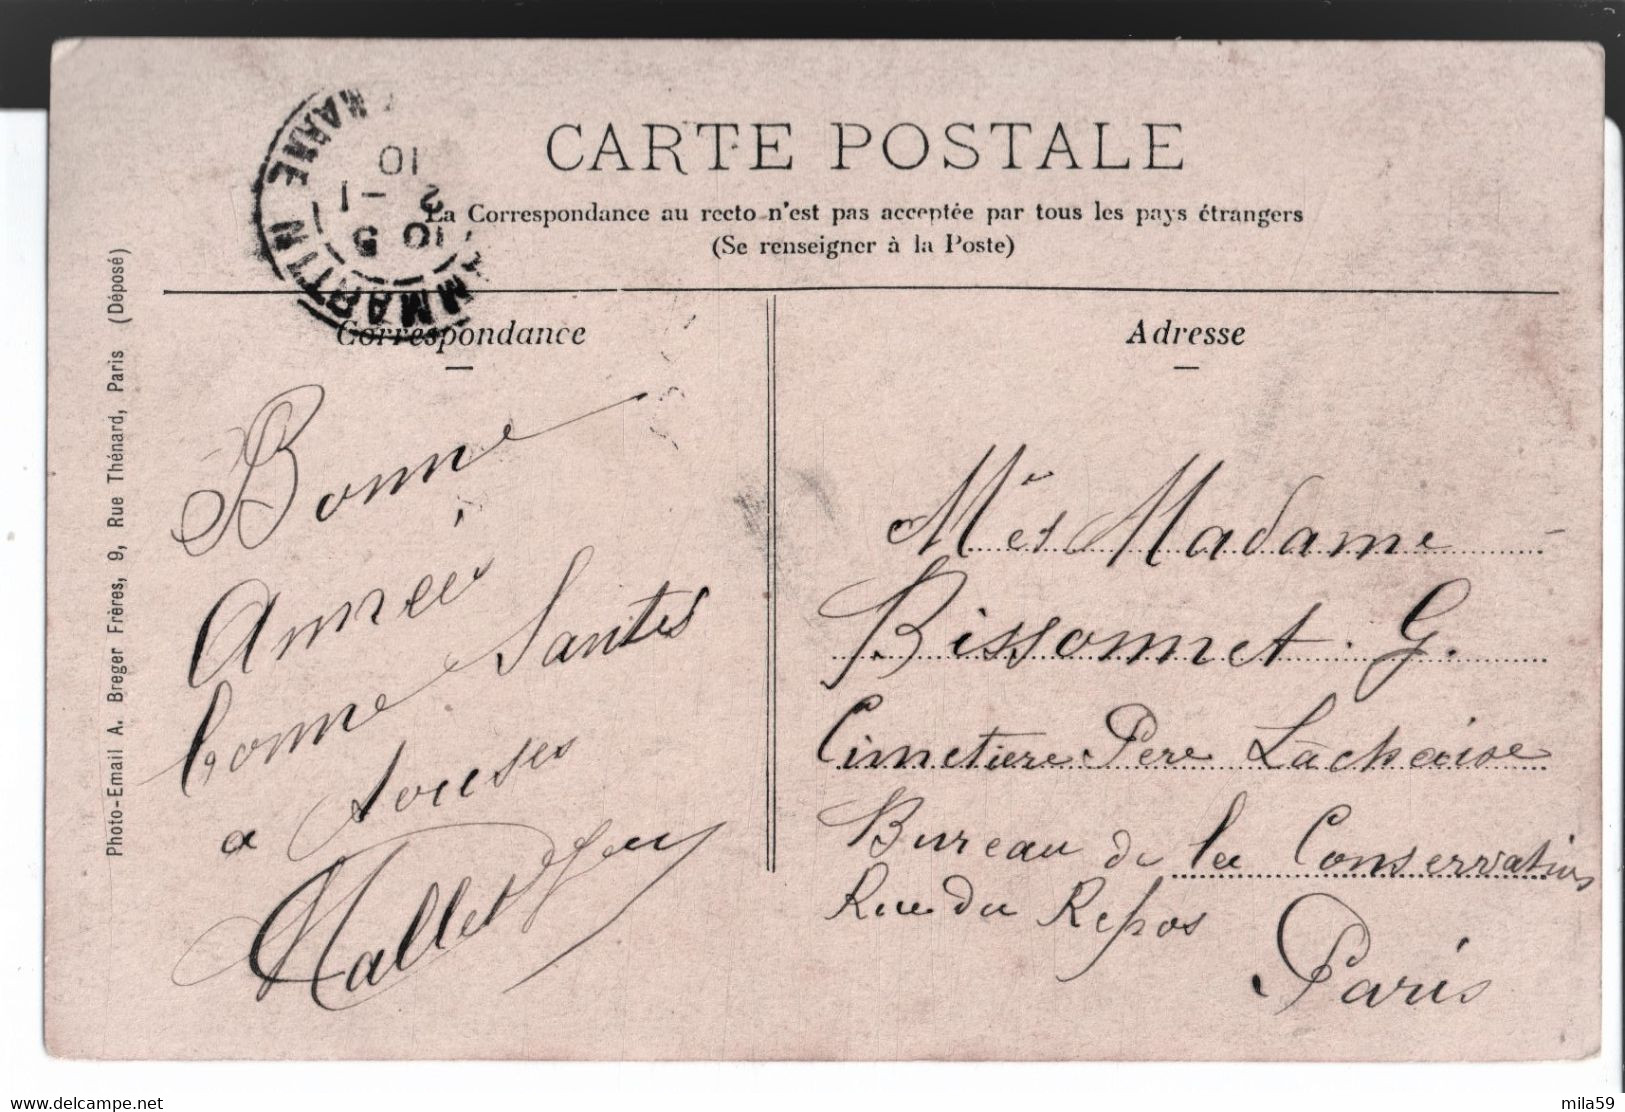 CARTE POSTALE
La Correspondance au recto n'est pas acceptée par tous les pays étrangers
(Se renseigner à la Poste)
MARTIN
MARNE
10 5
2 - 1
10
Correspondance
Bonne
Année
bonne Santés
a
Mallet
Adresse
Mr et Madame
Bissonnet . G.
Cimetiere Pere Lachaise
Bureau de la Conservation
Rue du Repos
Paris
Photo-Email A. Breger Frères, 9, Rue Thénard, Paris (Déposé)
delcampe.net
mila59